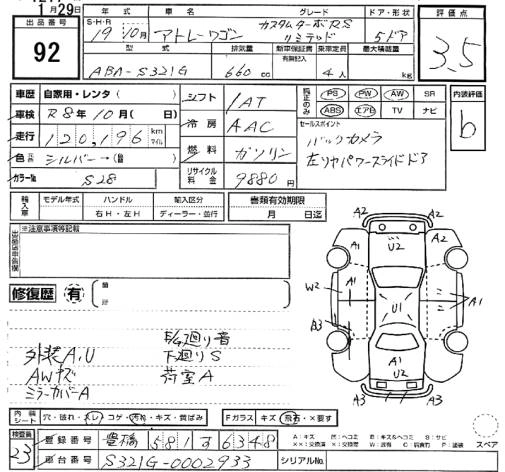 1月29日
出品番号
92
年式 車名 グレード ドア・形状 評価点
S・H・R 19年10月 アトレーワゴン カスタムターボRS リミテッド 5ドア
3.5
型式 排気量 新車保証書 乗車定員 最大積載量
有無記入
ABA-S321G 660cc 4人 kg
車歴 自家用・レンタ( )
車検 R8年10月( 日)
走行 120,196 km マイル
色 シルバー→
カラーNo. S28
シフト 1AT
冷房 AAC
燃料 ガソリン
リサイクル料金 9880円
純正のみ PS PW AW SR
ABS エアB TV ナビ
セールスポイント
バックカメラ
左リヤパワースライドドア
内装評価
b
輸入車 モデル年式 ハンドル 輸入区分
右H・左H ディーラー・並行
書類有効期限
月 日迄
※注意事項等記載
修復歴 有
外装A,U
AWキズ
ミラーカバーA
下廻りS
荷室A
A2 A2
A1 U2 A2
W2 A1 U1 A1
A3 A1
U2
A3 A3
内装シート 穴・破れ・スレ・コゲ・汚れ・キズ・黄ばみ
Fガラス キズ・飛石・×要す
検査員
23
登録番号 豊橋 581 す 6348
車台番号 S321G-0002933
シリアルNo.
A:キズ
スペア